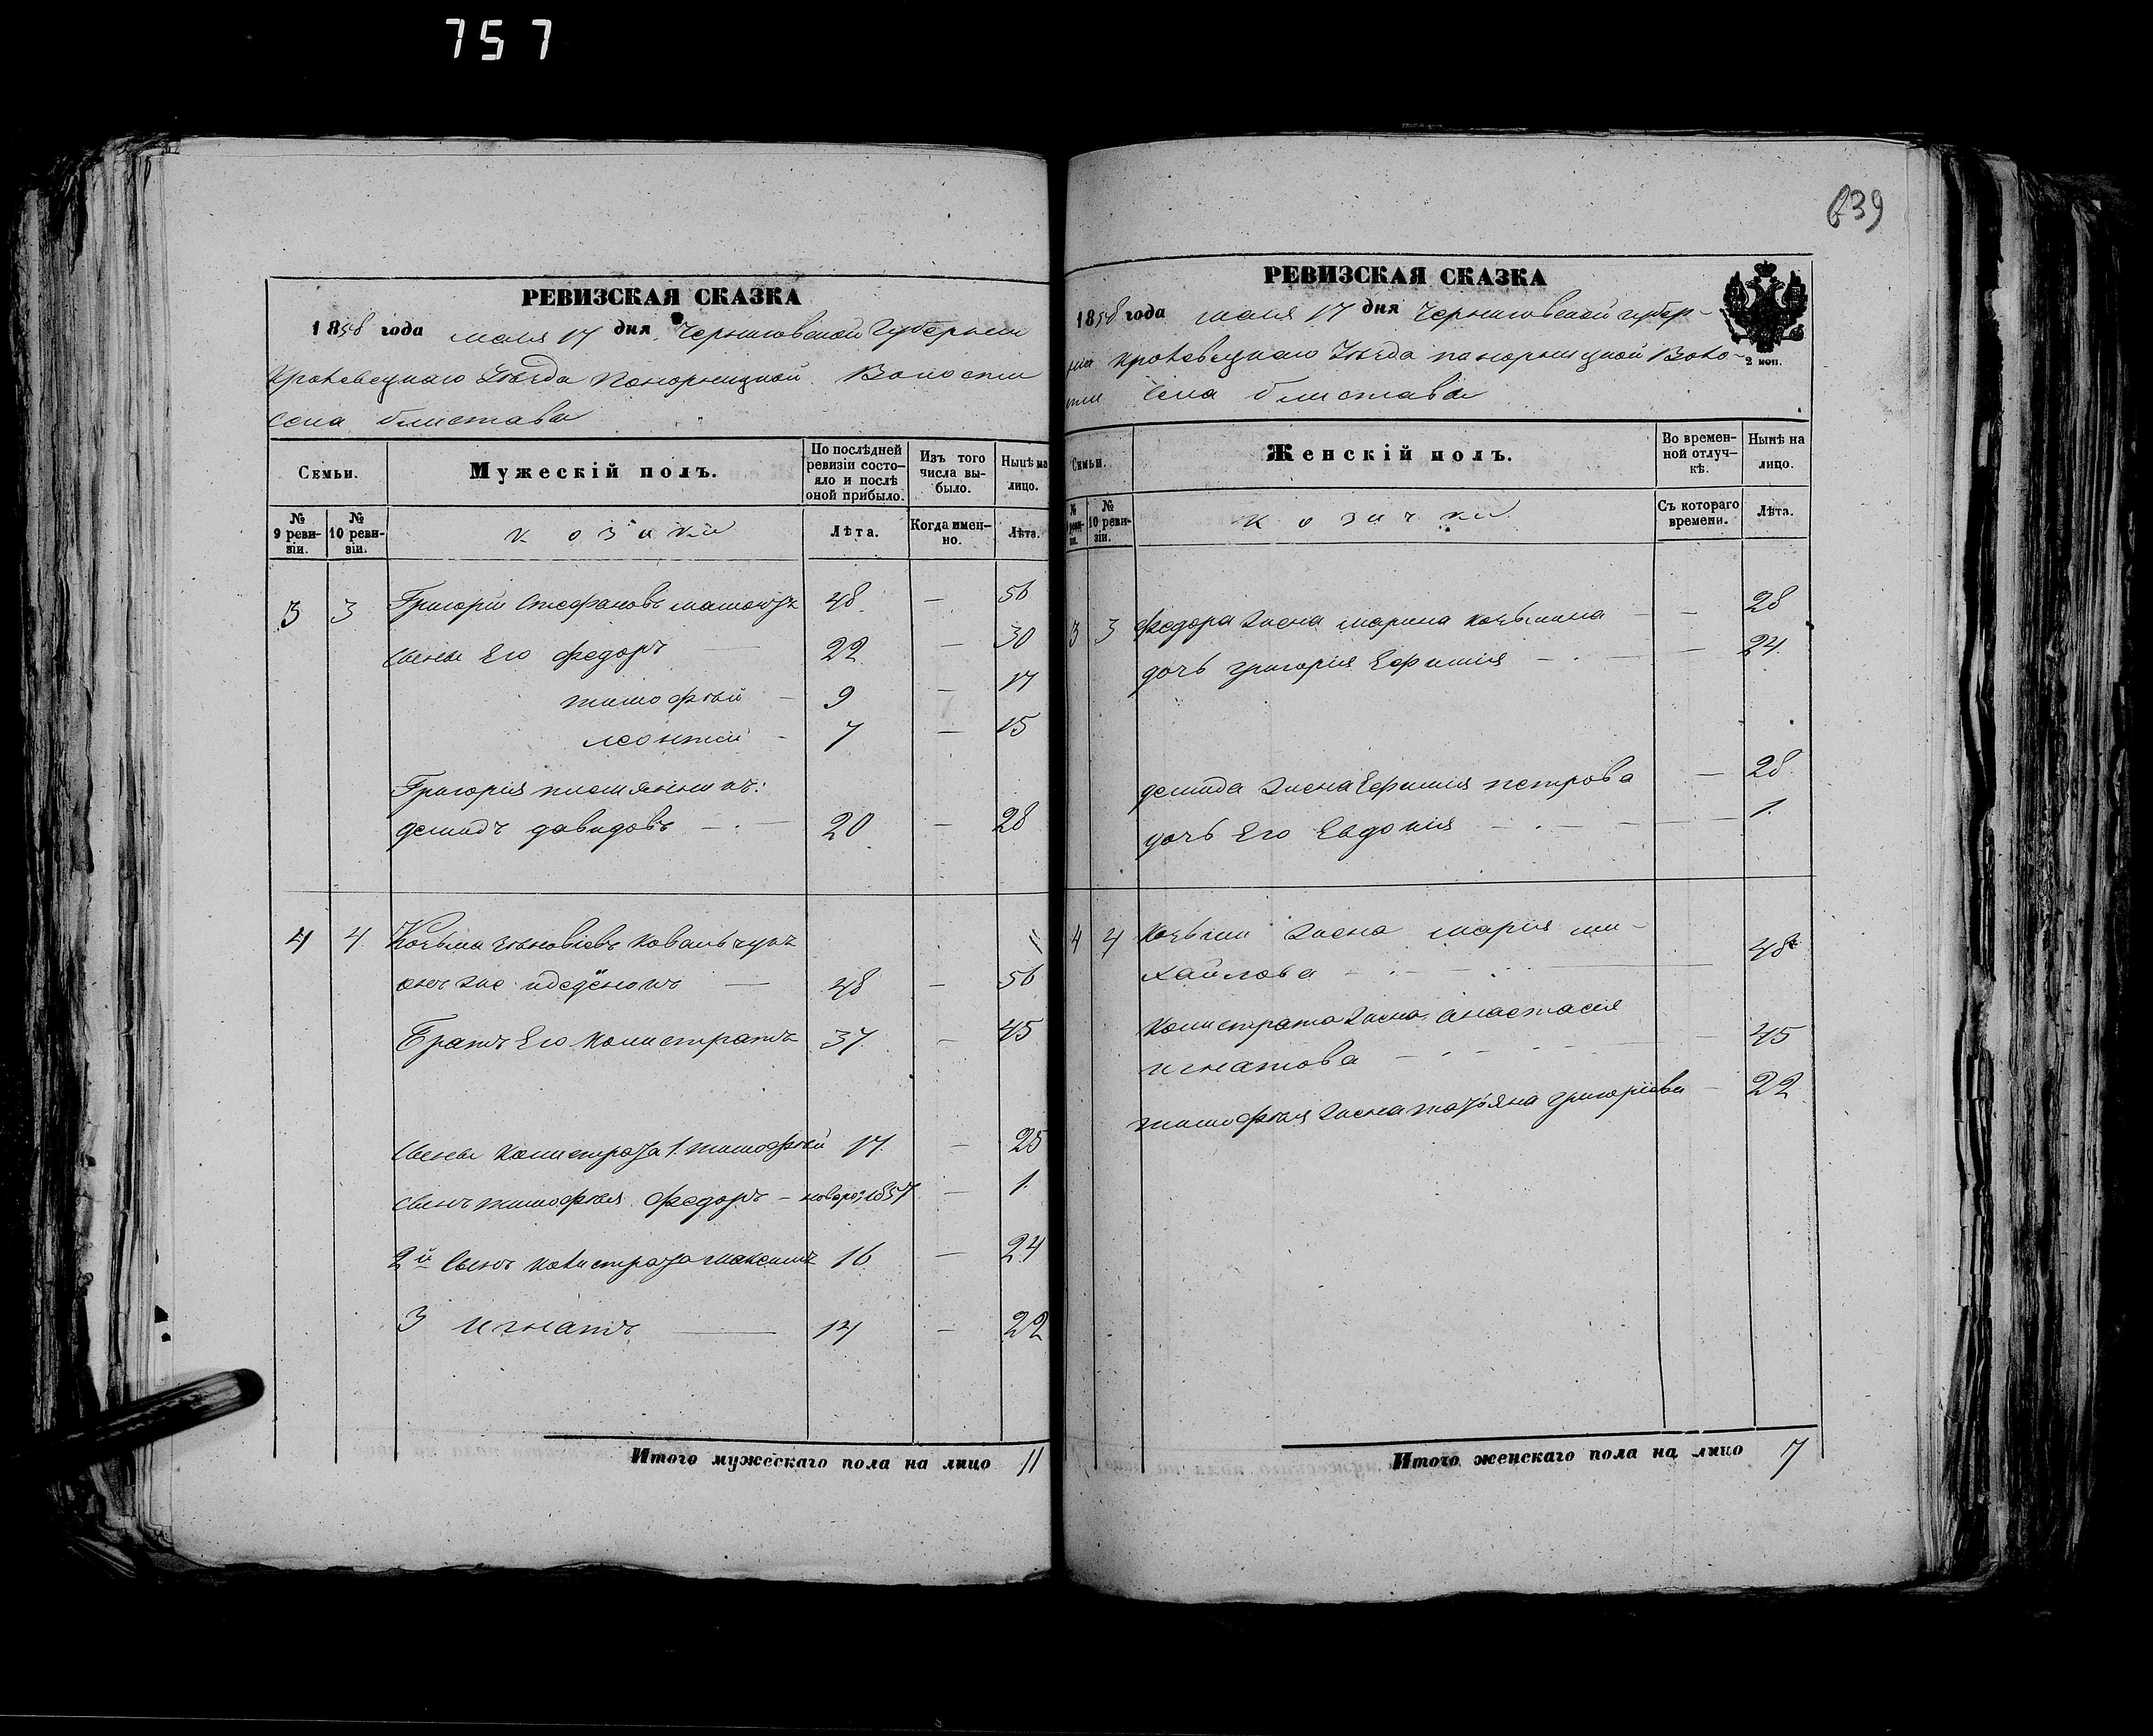 757
639
РЕВИЗСКАЯ СКАЗКА
1858 года мая 17 дня Черниговской Губернии
Кролевецкаго Уѣзда Понорницкой Волости
села блистава
Семьи.
Мужескій полъ.
По послѣдней ревизіи состояло и послѣ оной прибыло.
Изъ того числа выбыло.
Нынѣ на лицо.
№ 9 ревизіи.
№ 10 ревизіи.
козаки
Лѣта.
Когда именно.
Лѣта.
3 3 Григорій Стефановъ 48 — 56
Сыны Его федоръ — 22 — 30
тимофѣй — 9 — 17
леонтій — 7 — 15
Григорія племянникъ:
демидъ давидовъ — 20 — 28
4 4 Козьма Ковальчукъ
онъ же 48 — 56
Братъ Его Калистратъ 37 — 45
Сыны Калистрата 1. тимофѣй 17 — 25
сынъ тимофѣя федоръ — новорож: 1857 — 1
2й Сынъ Калистрата Максимъ 16 — 24
3 игнатъ — 14 — 22
Итого мужескаго пола на лицо 11
РЕВИЗСКАЯ СКАЗКА
1858 года мая 17 дня Черниговской губер-
ніи Кролевецкаго Уѣзда понорницкой Воло-
сти Села блистава
2 коп.
Семьи.
Женскій полъ.
Во временной отлучкѣ.
Нынѣ на лицо.
№ 9 ревизіи.
№ 10 ревизіи.
козачки
Съ котораго времени.
Лѣта.
3 3 федора жена марина козьмина — — 28
дочь григорія Ефимія — — 24
демида жена Ефимія петрова — 28
дочь Его Евдокія — — 1.
4 4 Козьмы жена марія ми-
хайлова — 48
Калистрата жена анастасія
игнатова — 45
тимофѣя жена татьяна григоріева — 22
Итого женскаго пола на лицо 7